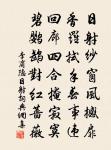 日射紗窗風撼扉
香羅拭手春事違
回廊四合掩寂寞
碧鸚鵡對紅薔薇
李商隱日射